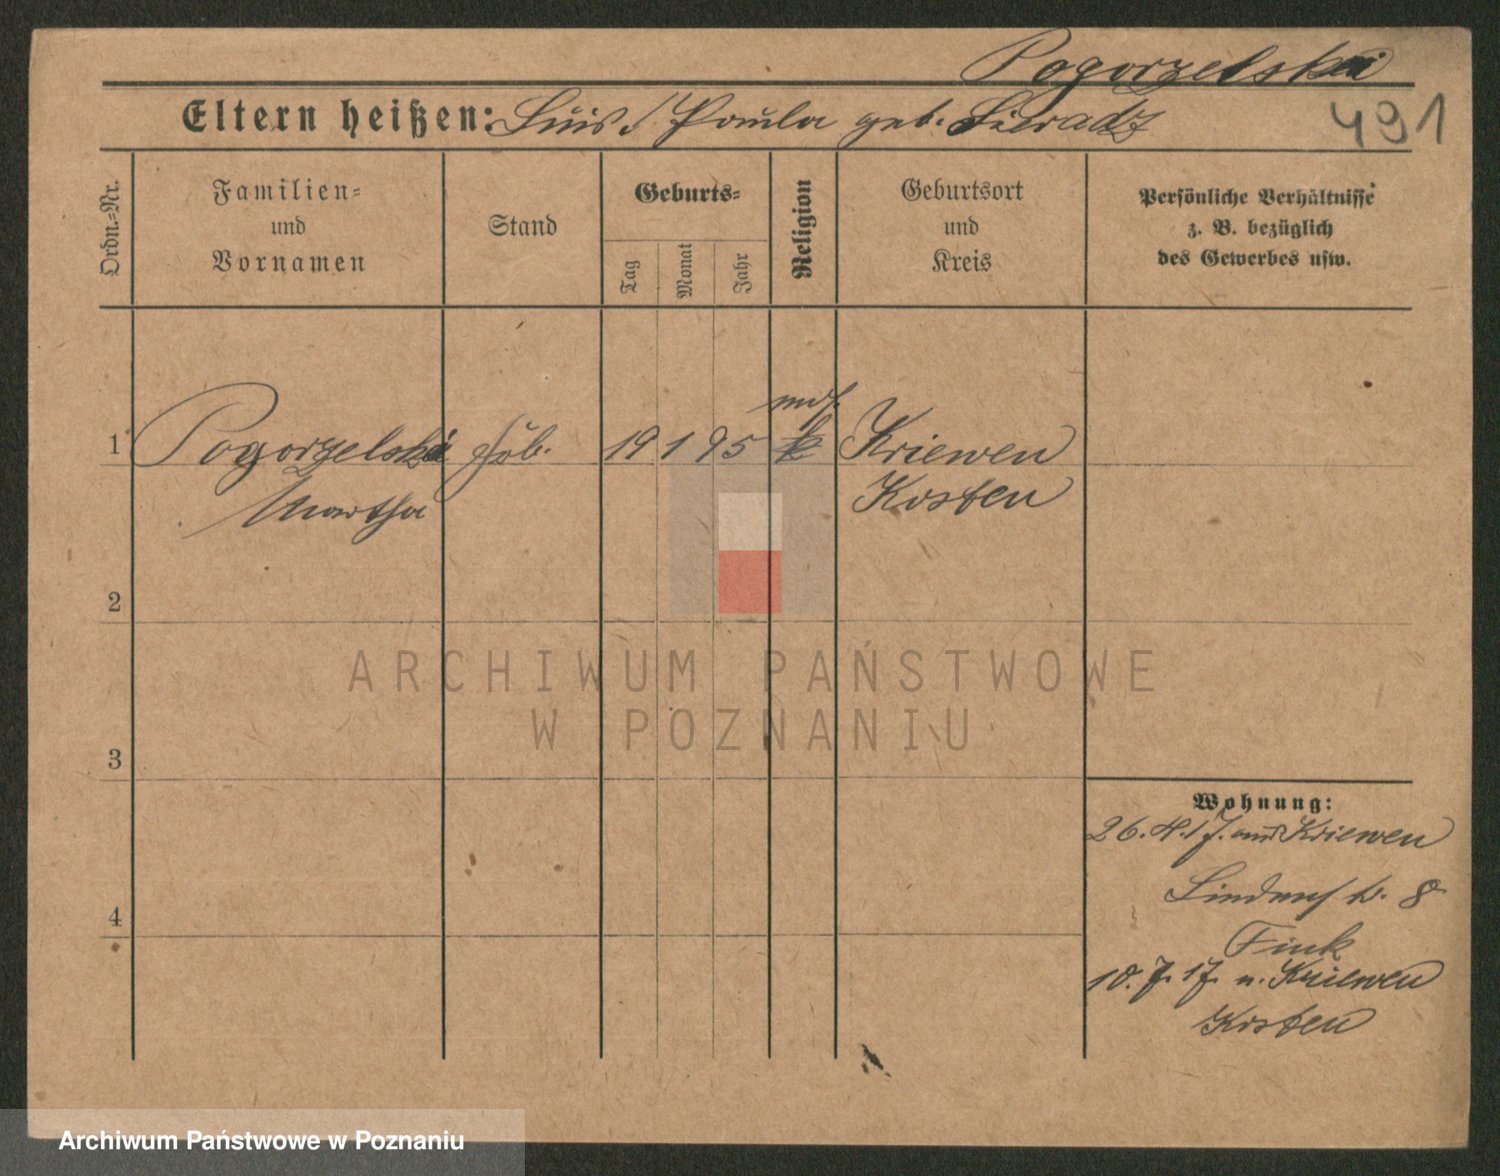 Pogorzelski
Eltern heißen: Luis / Paula geb. Sieradz
491
Ordn.-Nr.
Familien-
und
Vornamen
Stand
Geburts-
Tag
Monat
Jahr
Religion
Geburtsort
und
Kreis
Persönliche Verhältnisse
z. B. bezüglich
des Gewerbes usw.
mos.
1 Pogorzelski 19 1 95 k Kriewen
Martha Kosten
2
3
4
Wohnung:
26. 4. 17. aus Kriewen
8
Fink
10. 7. 17 n. Kriewen
Kosten
ARCHIWUM PAŃSTWOWE
W POZNANIU
Archiwum Państwowe w Poznaniu